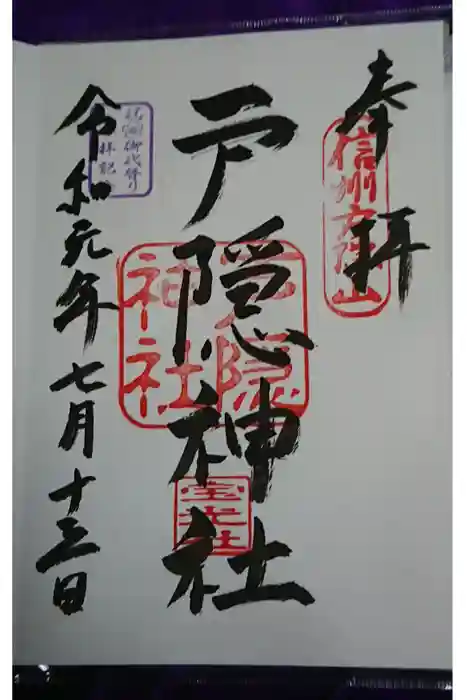 奉拝
信州戸隠山
戸隠神社
戸隠神社
宝光社
令和元年七月十三日
祝御代替り
拝記念